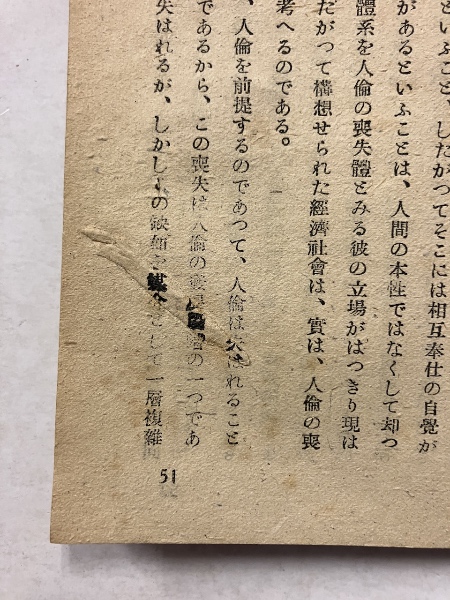 といふこと、したがつてそこには相互奉仕の自覺が
があるといふことは、人間の本性ではなくして却つ
體系を人倫の喪失體とみる彼の立場がはつきり現は
だがつて構想せられた經濟社會は、實は、人倫の喪
考へるのである。
、人倫を前提するのであつて、人倫は失はれること
であるから、この喪失は人倫の發展段階の一つであ
失はれるが、しかしこの缺如を媒介として一層複雜
51